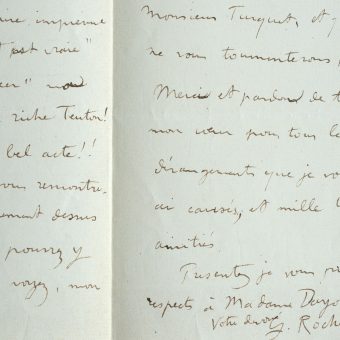 imprimé
est vrai"
riche Teuton!
bel acte!!
vous rencontre-
dessus
pourrez y
voyez, mon
Monsieur Turquet, et
ne vous tourmenterons
Merci et pardon de
mon cœur pour tous le
dérangements que je vo
ai causés, et mille
amitiés.
Presentez je vous pr
respects à Madame Dayo
Votre dévoué H. Roche